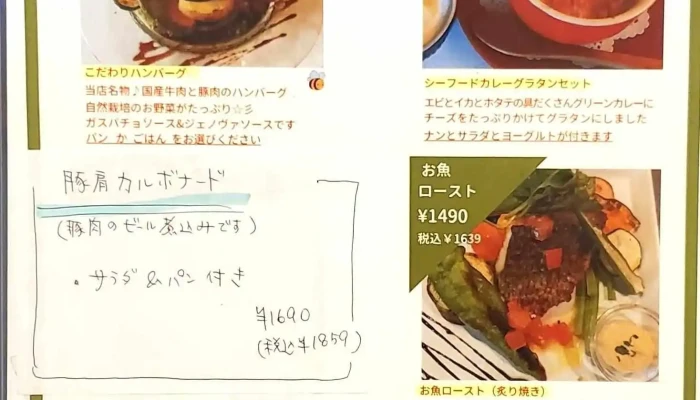 こだわりハンバーグ
当店名物♪国産牛肉と豚肉のハンバーグ
自然栽培のお野菜がたっぷり☆彡
ガスパチョソース&ジェノヴァソースです
パン か ごはん をお選びください
豚肩カルボナード
(豚肉のビール煮込みです)
・サラダ&パン付き
¥1690
(税込¥1859)
シーフードカレーグラタンセット
エビとイカとホタテの具だくさんグリーンカレーに
チーズをたっぷりかけてグラタンにしました
ナンとサラダとヨーグルトが付きます
お魚
ロースト
¥1490
税込¥1639
お魚ロースト（炙り焼き）